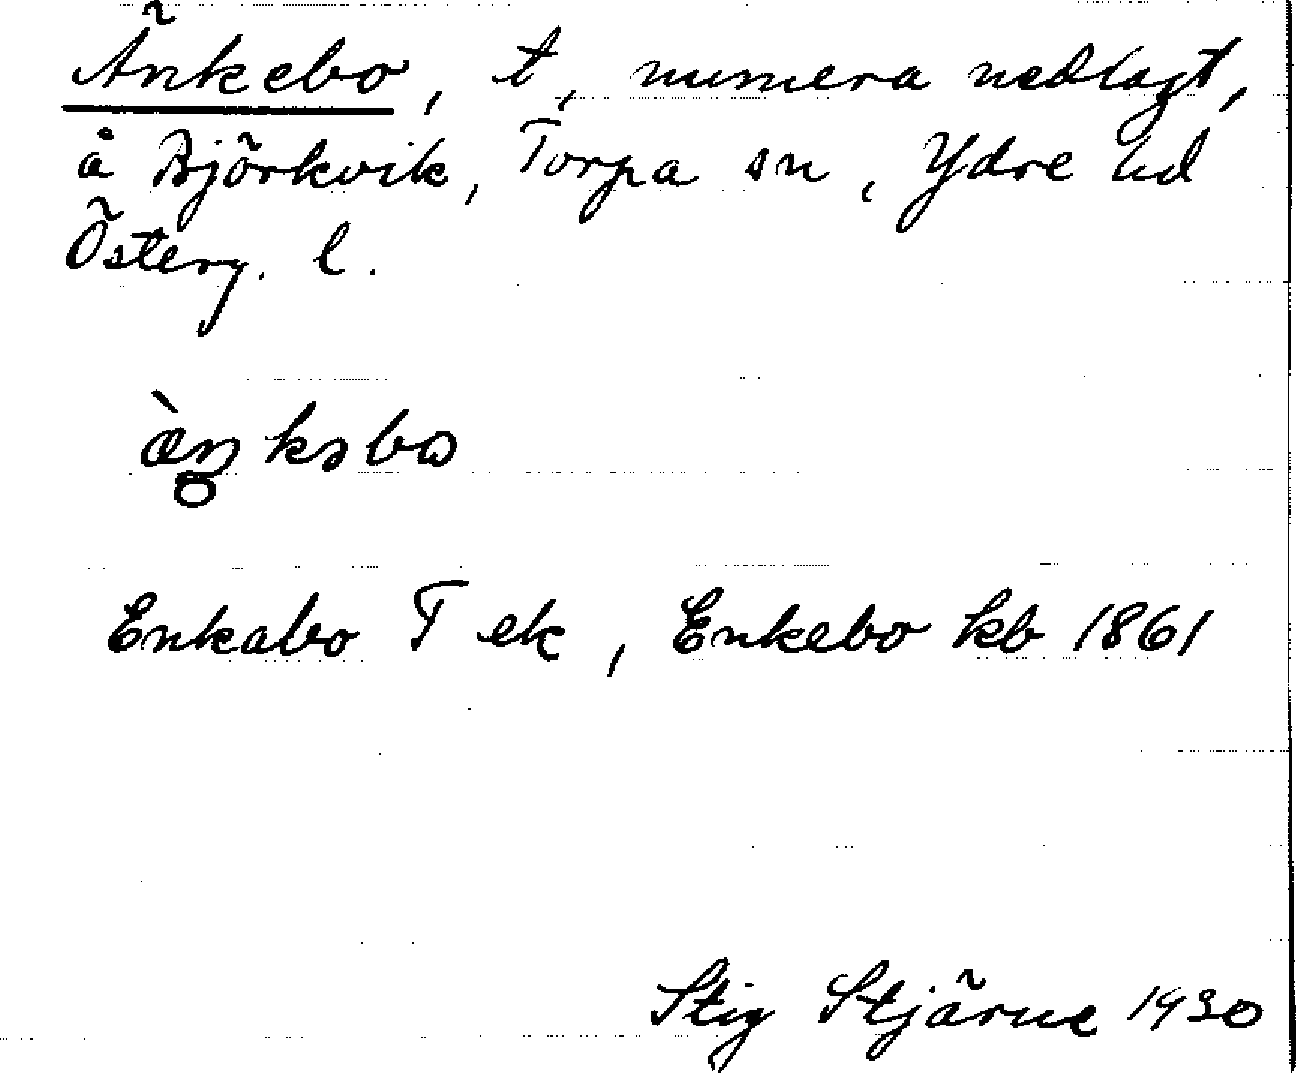 Änkebo, t, numera nedlagt,
å Björkvik, Torpa sn, Ydre hd
Österg. l.
æ̀ŋkəbω
Enkabo T ek, Enkebo kb 1861
Stig Stjärne 1930